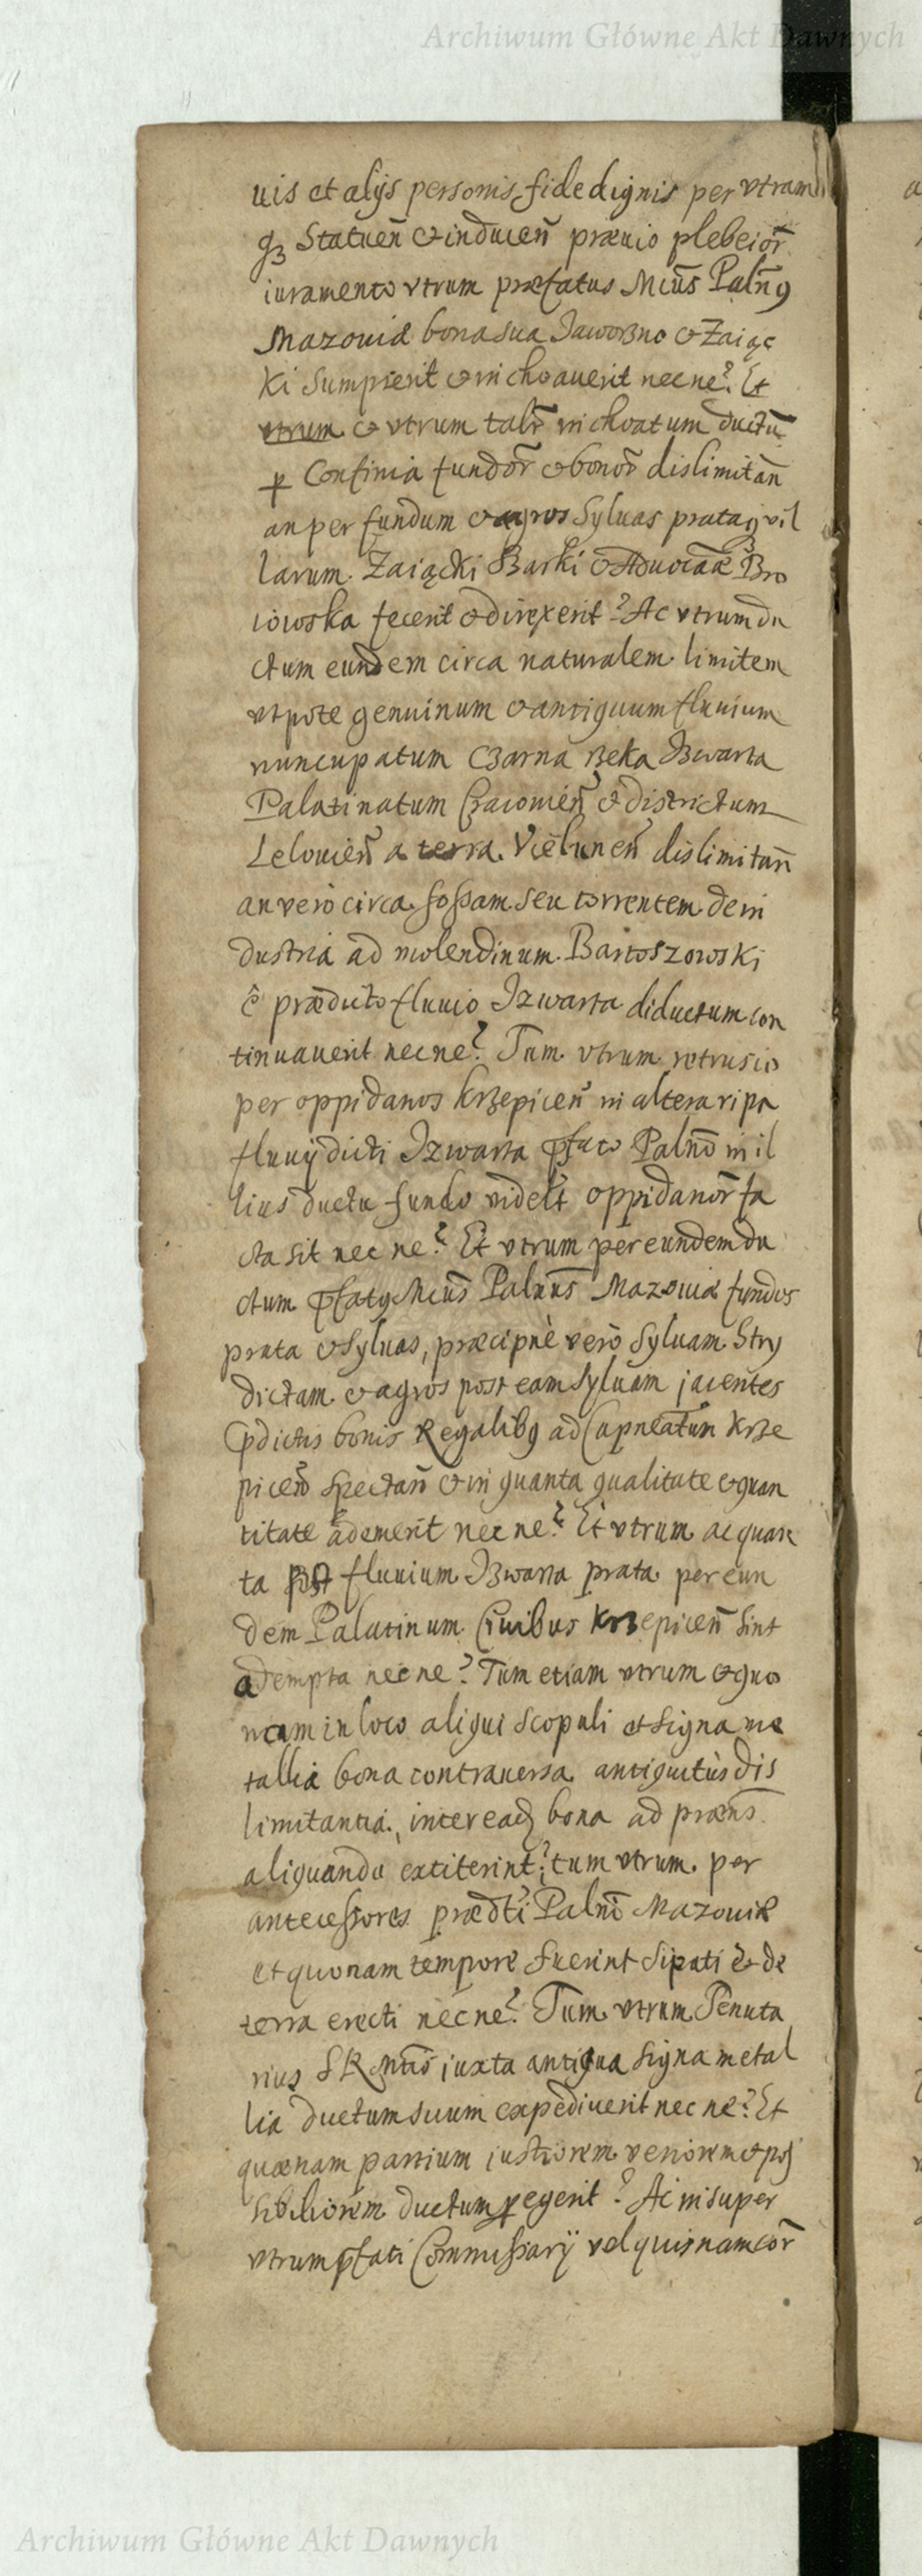 Archiwum Główne Akt Dawnych
uis et alijs personis fide dignis per vtram
qз Statuen̄ & inducen̄ præuio plebeior̄
iuramento vtrum præfatus Mcūs Paln̄9
Mazouiæ bona sua Jaworзno & Zaiąc
ki sumpserit & inchoauerit necne? Et
vtrum & vtrum talr̄ inchoatum ductū
p Confinia fundor̄ & bonor̄ dislimitan̄
an per fundum & agros Syluas prataqз vil
larum Zaiącki Barki & Aduocāāe Bro
iowska fecerit & direxerit? Ac vtrum du
ctum eundem circa naturalem limitem
vtpote genuinum & antiquum fluuium
nuncupatum Cзarna rзeka Jзwarta
Palatinatum Cracouien̄ & districtum
Lelouien̄ a terra Vielunen̄ dislimitan̄
an verò circa fossam seu torrentem de in
dustria ad molendinum Bartoszowski
è prædicto fluuio Izwarta diductum con
tinuauerit necne? Tum vtrum retrusio
per oppidanos Krзepicen̄ in altera ripa
fluuÿ dicti Izwarta pfato Palnō in il
lius ductu fundo videlt̄ oppidanor̄ fa
cta sit nec ne? Et vtrum per eundem du
ctum pfat9 Mcūs Palnūs Mazouiæ fundos
prata & syluas, præcipuè verò Syluam Stry
dictam & agros post eam syluam jacentes
pdictis bonis Regalib9 ad Capneātum Krзe
picen̄ spectan̄ & in quanta qualitate & quan
titate ademerit necne? Et vtrum ac quan
ta post fluuium Jзwarta prata per eun
dem Palatinum Ciuibus Krзepicen̄ sint
adempta necne? Tum etiam vtrum & quo
nam in loco aliqui Scopuli et signa me
tallia bona controuersa antiquitùs dis
limitantia, inter eadз bona ad præns̄
aliquando extiterint? tum vtrum per
antecessores prædti Palnī Mazouiæ
et quonam tempore fuerint sipati & de
terra erecti necne? Tum vtrum Tenuta
rius S R Mtis̄ juxta antiqua signa metal
lia ductum suum expediuerit nec ne? Et
quænam partium justiorem veriorem & pos
sibiliorem ductum pegerit? Ac insuper
vtrum pfati Commissarÿ vel quisnam eor̄
Archiwum Główne Akt Dawnych